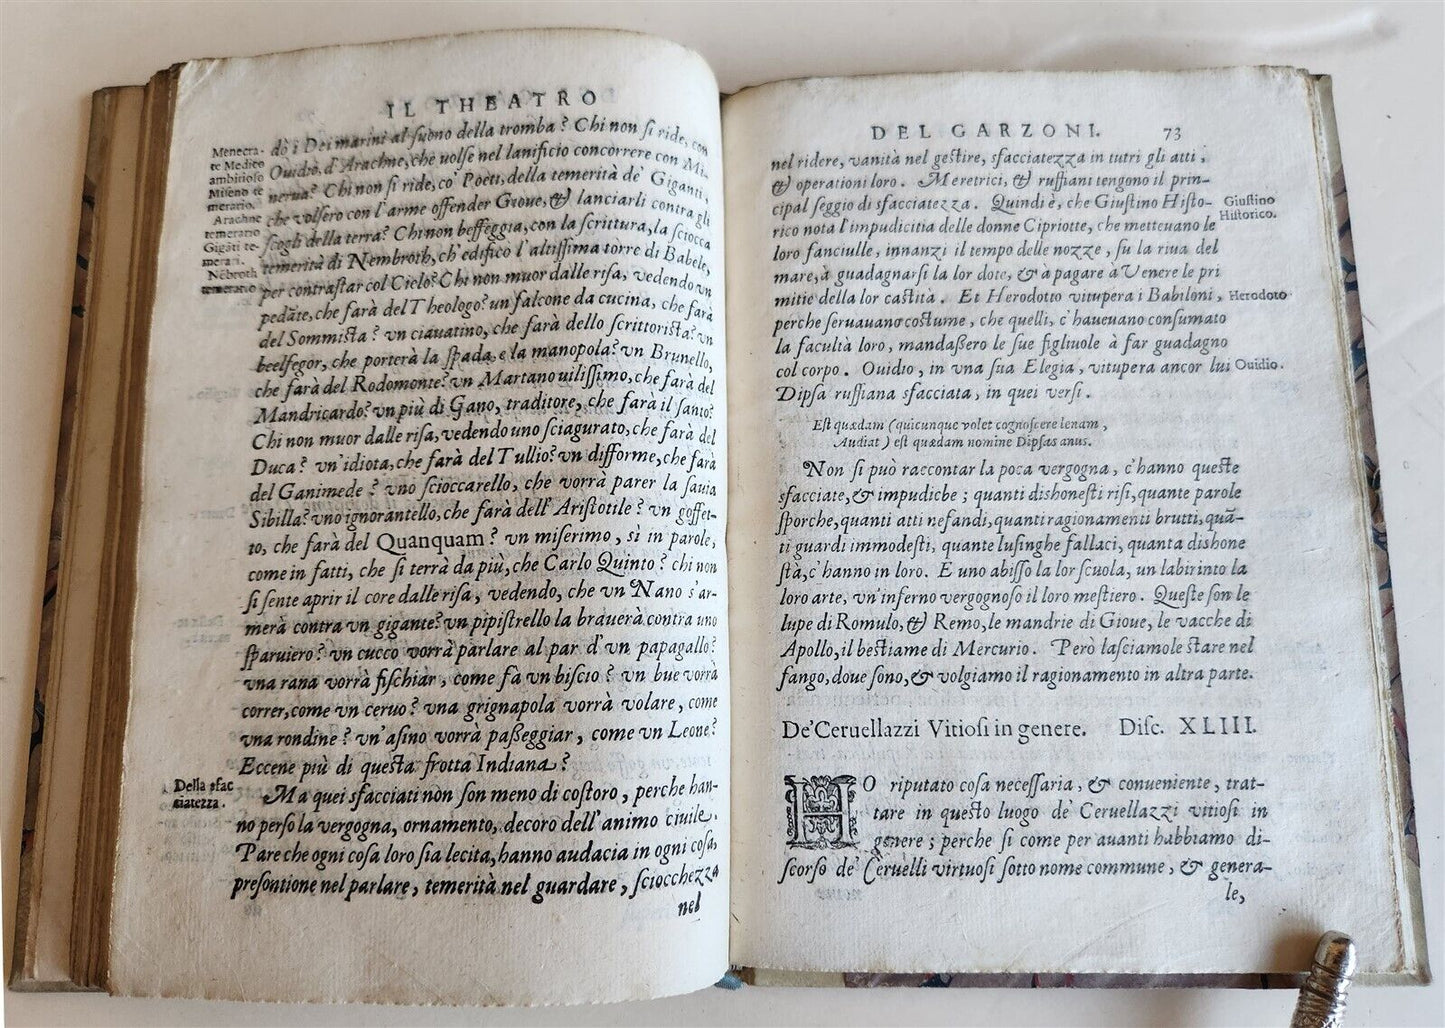 IL THEATRO
Menecra-
te Medico
ambitioso
Miseno te
merario.
Arachne
temerario
Gigãti te-
merari.
Nẽbroth
temerario
dò i Dei marini al suono della tromba? Chi non si ride, con
Ouidio, d'Arachne, che volse nel lanificio concorrere con Mi-
nerua? Chi non si ride, co' Poeti, della temerità de' Giganti,
che volsero con l'arme offender Gioue, & lanciarli contra gli
scogli della terra? Chi non beffeggia, con la scrittura, la sciocca
temerità di Nembroth, ch'edificò l'altissima torre di Babele,
per contrastar col Cielo? Chi non muor dalle risa, vedendo vn
pedãte, che farà del Theologo? un falcone da cucina, che farà
del Sommista? vn ciauatino, che farà dello scrittorista? vn
beelfegor, che porterà la spada, e la manopola? vn Brunello,
che farà del Rodomonte? vn Martano uilissimo, che farà del
Mandricardo? vn più di Gano, traditore, che farà il santo?
Chi non muor dalle risa, vedendo uno sciagurato, che farà del
Duca? vn'idiota, che farà del Tullio? vn difforme, che farà
del Ganimede? uno scioccarello, che vorrà parer la sauia
Sibilla? uno ignorantello, che farà dell'Aristotile? vn goffet-
to, che farà del Quanquam? vn miserimo, sì in parole,
come in fatti, che si terrà da più, che Carlo Quinto? chi non
si sente aprir il core dalle risa, vedendo, che vn Nano s'ar-
merà contra vn gigante? vn pipistrello la brauerà contra uno
sparuiero? vn cucco vorrà parlare al par d'vn papagallo?
vna rana vorrà fischiar, come fà vn biscio? vn bue vorrà
correr, come vn ceruo? vna grignapola vorrà volare, come
vna rondine? vn'asino vorrà passeggiar, come vn Leone?
Eccene più di questa frotta Indiana?
Della sfac
ciatezza.
Ma quei sfacciati nòn son meno di costoro, perche han-
no perso la vergogna, ornamento, decoro dell'animo ciuile.
Pare che ogni cosa loro sia lecita, hanno audacia in ogni cosa,
presontione nel parlare, temerità nel guardare, sciocchezza
nel
DEL GARZONI. 73
nel ridere, vanità nel gestire, sfacciatezza in tutri gli atti,
& operationi loro. Meretrici, & ruffiani tengono il prin-
cipal seggio di sfacciatezza. Quindi è, che Giustino Histo-
rico nota l'impudicitia delle donne Cipriotte, che metteuano le
loro fanciulle, innanzi il tempo delle nozze, su la riua del
mare, à guadagnarsi la lor dote, & à pagare à Venere le pri
mitie della lor castità. Et Herodotto vitupera i Babiloni,
perche seruauano costume, che quelli, c'haueuano consumato
la facultà loro, mandassero le sue figliuole à far guadagno
col corpo. Ouidio, in vna sua Elegia, vitupera ancor lui
Dipsa ruffiana sfacciata, in quei versi.
Giustino
Historico.
Herodoto
Ouidio.
Est quædam (quicunque volet cognoscere lenam,
Audiat) est quædam nomine Dipsas anus.
Non si può raccontar la poca vergogna, c'hanno queste
sfacciate, & impudiche; quanti dishonesti risi, quante parole
sporche, quanti atti nefandi, quanti ragionamenti brutti, quã-
ti guardi immodesti, quante lusinghe fallaci, quanta dishone
stà, c'hanno in loro. E uno abisso la lor scuola, un labirinto la
loro arte, vn'inferno vergognoso il loro mestiero. Queste son le
lupe di Romulo, & Remo, le mandrie di Gioue, le vacche di
Apollo, il bestiame di Mercurio. Però lasciamole stare nel
fango, doue sono, & volgiamo il ragionamento in altra parte.
De'Ceruellazzi Vitiosi in genere. Disc. XLIII.
HO riputato cosa necessaria, & conueniente, trat-
tare in questo luogo de' Ceruellazzi vitiosi in
genere; perche si come per auanti habbiamo di-
scorso de' Ceruelli virtuosi sotto nome commune, & genera-
le,